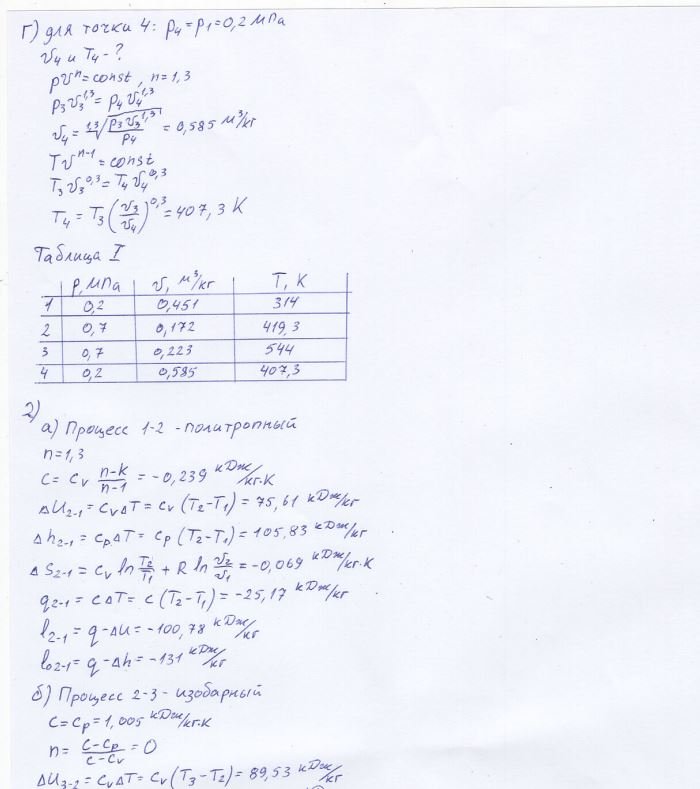 г) для точки 4: p₄ = p₁ = 0,2 мПа
v₄ и T₄ - ?
pvⁿ = const, n = 1,3
p₃v₃^1,3 = p₄v₄^1,3
v₄ = ^1,3√(p₃v₃^1,3 / p₄) = 0,585 м³/кг
Tv^n-1 = const
T₃v₃^0,3 = T₄v₄^0,3
T₄ = T₃(v₃/v₄)^0,3 = 407,3 K
Таблица I
p, мПа v, м³/кг T, K
1 0,2 0,451 314
2 0,7 0,172 419,3
3 0,7 0,223 544
4 0,2 0,585 407,3
2)
а) Процесс 1-2 - политропный
n = 1,3
c = cᵥ (n-k)/(n-1) = -0,239 кДж/кг·К
ΔU₂₋₁ = cᵥΔT = cᵥ(T₂-T₁) = 75,61 кДж/кг
Δh₂₋₁ = cₚΔT = cₚ(T₂-T₁) = 105,83 кДж/кг
ΔS₂₋₁ = cᵥ ln T₂/T₁ + R ln v₂/v₁ = -0,069 кДж/кг·К
q₂₋₁ = cΔT = c(T₂-T₁) = -25,17 кДж/кг
l₂₋₁ = q-Δu = -100,78 кДж/кг
l₀₂₋₁ = q-Δh = -131 кДж/кг
б) Процесс 2-3 - изобарный
c = cₚ = 1,005 кДж/кг·К
n = (c-cₚ)/(c-cᵥ) = 0
ΔU₃₋₂ = cᵥΔT = cᵥ(T₃-T₂) = 89,53 кДж/кг